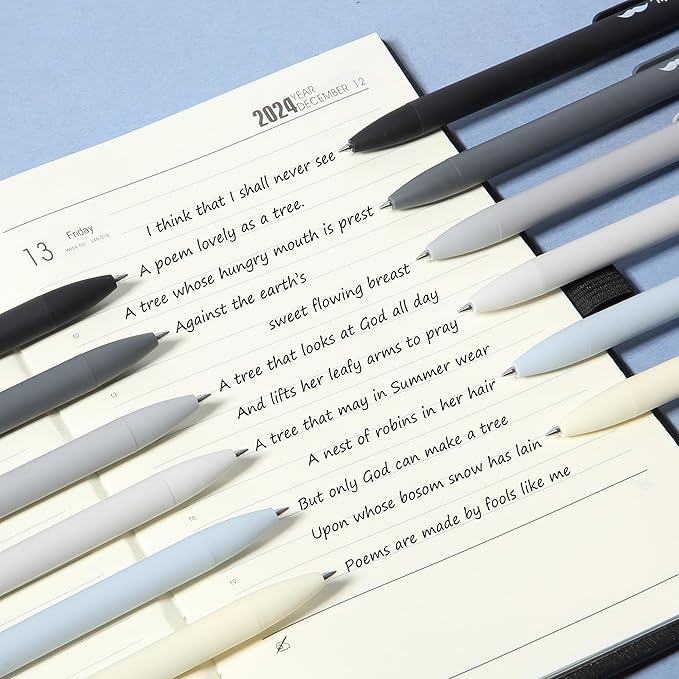 2024 YEAR DECEMBER 12
13 Friday
I think that I shall never see
A poem lovely as a tree.
A tree whose hungry mouth is prest
Against the earth's
sweet flowing breast
A tree that looks at God all day
And lifts her leafy arms to pray
A tree that may in Summer wear
A nest of robins in her hair
But only God can make a tree
Upon whose bosom snow has lain
Poems are made by fools like me